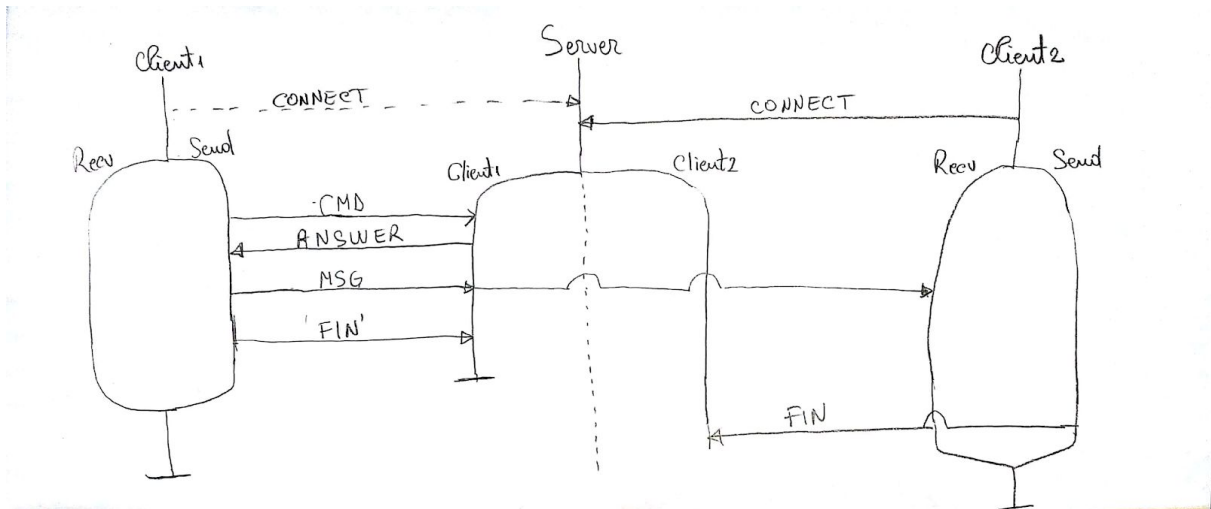 Client1
Server
Client2
CONNECT
CONNECT
Recv
Send
Client1
Client2
Recv
Send
CMD
ANSWER
MSG
'FIN'
FIN